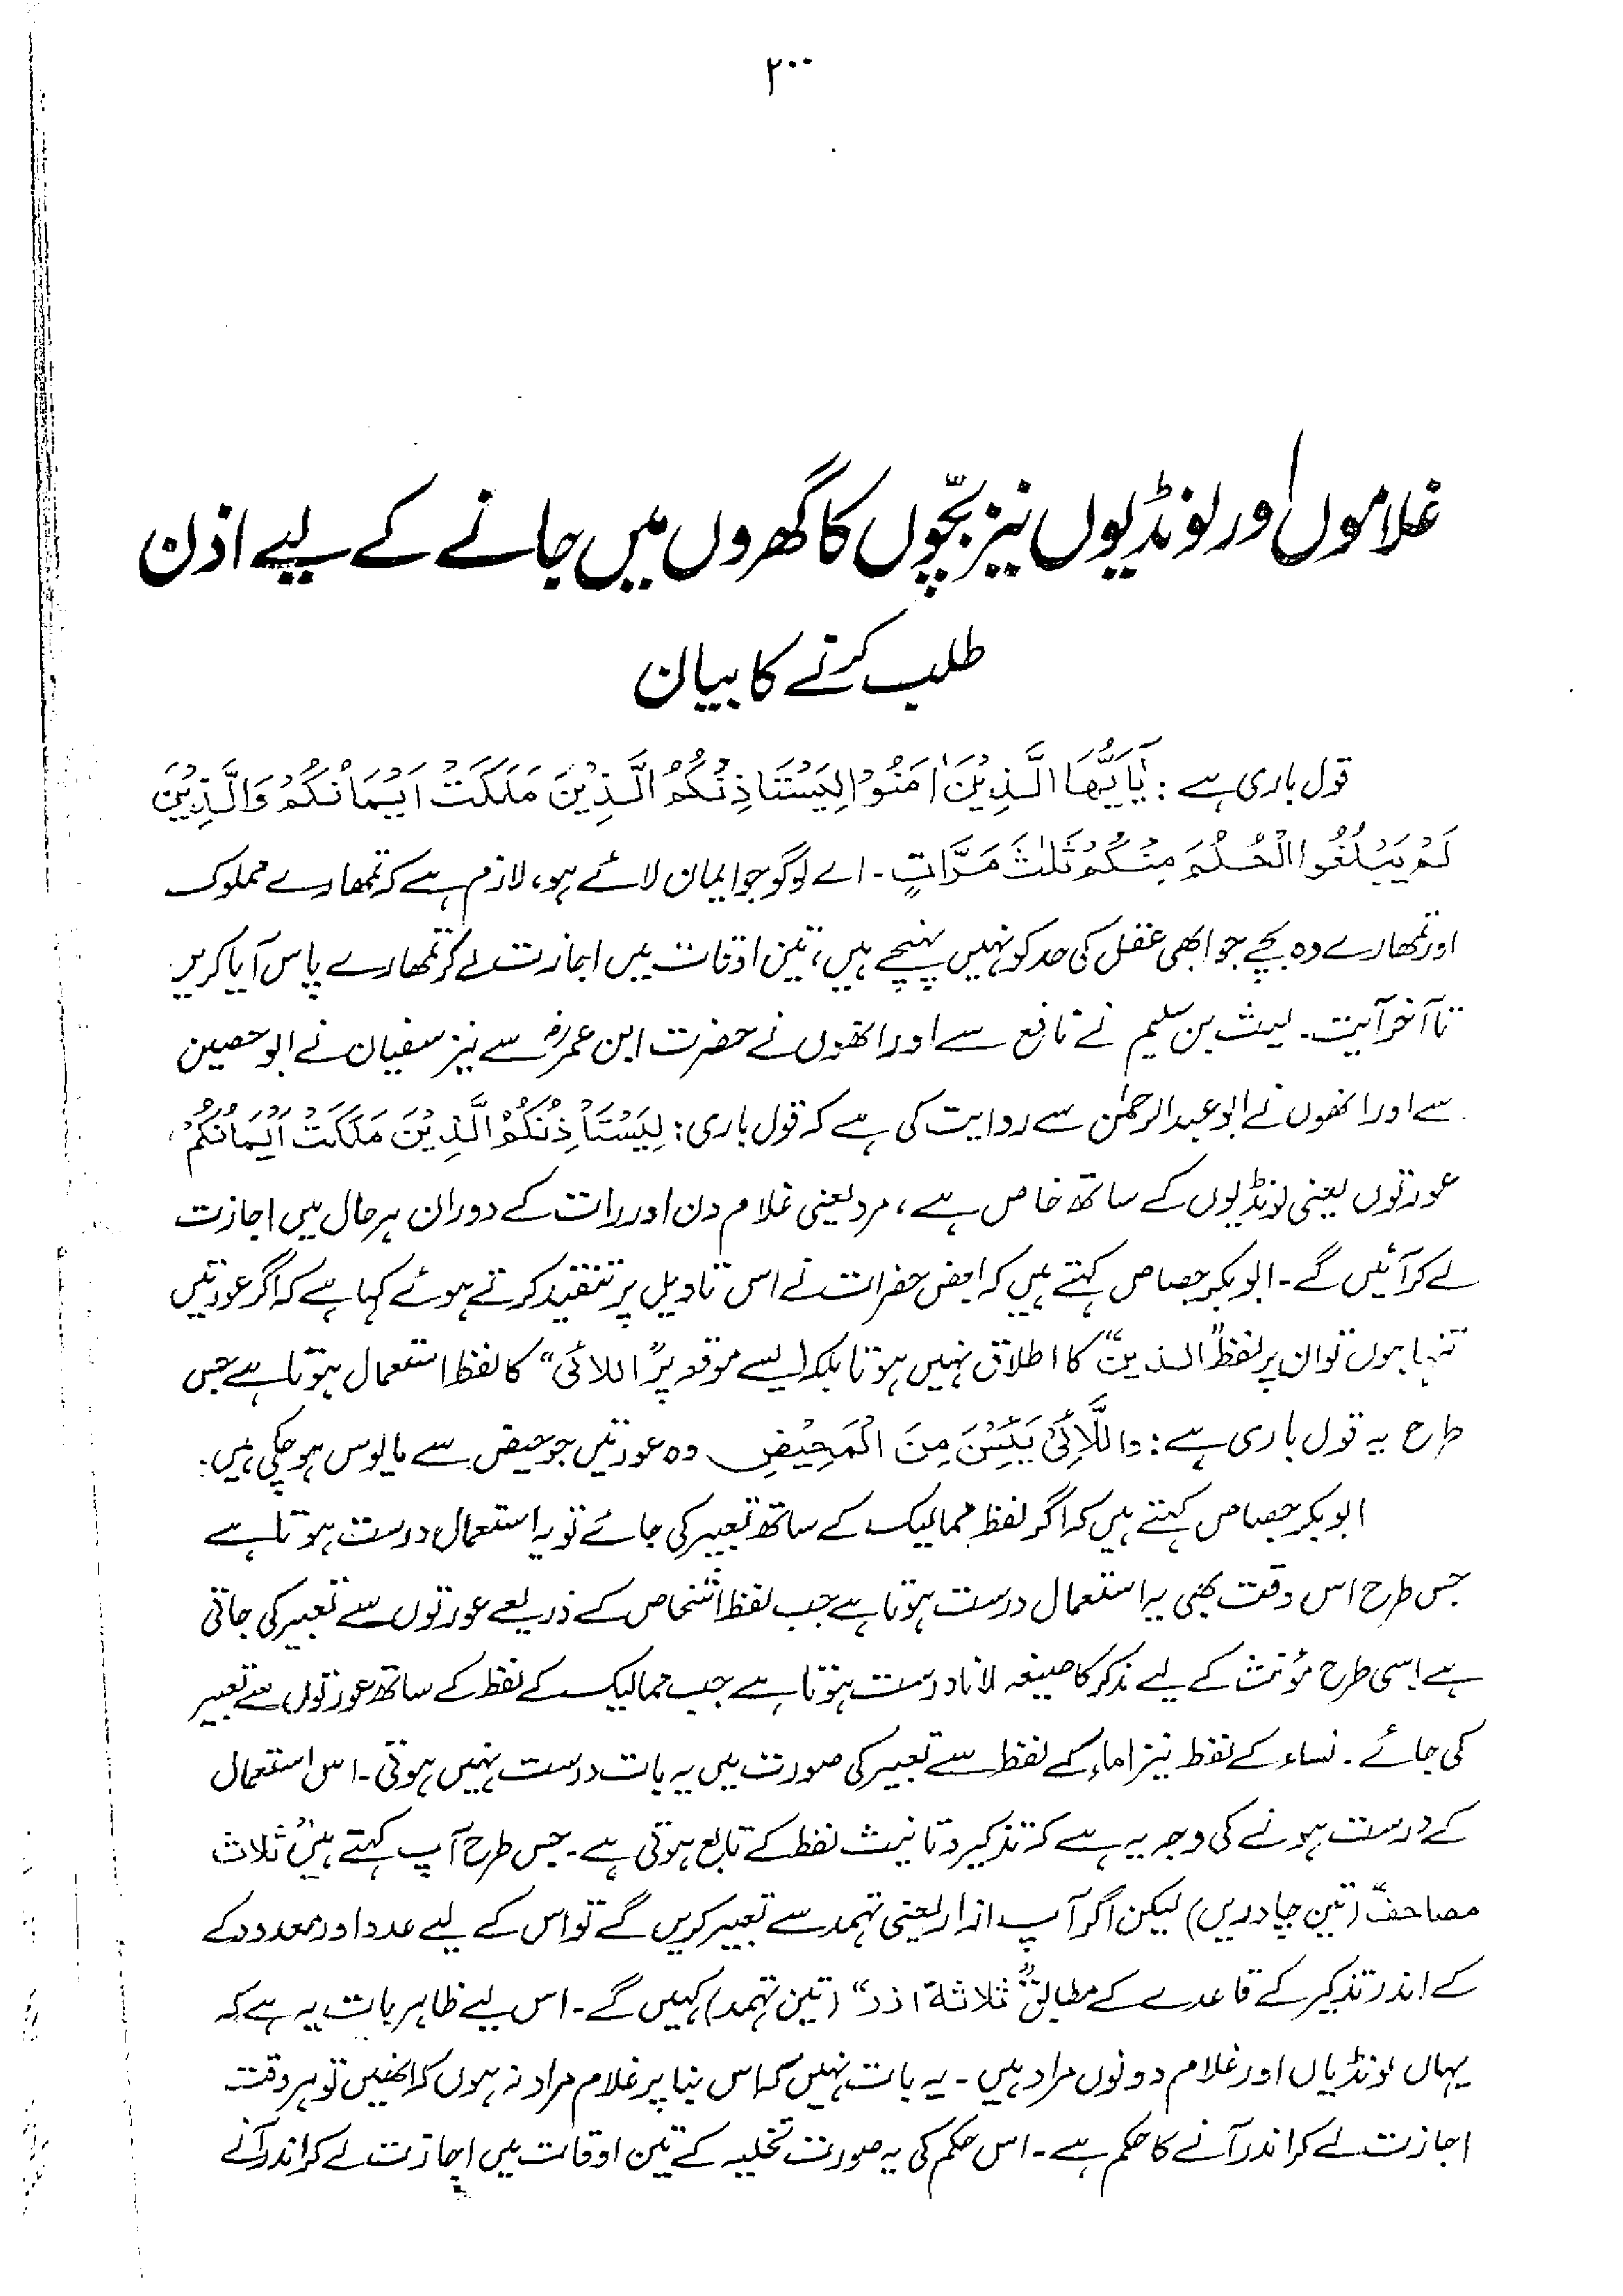 ۲۰۰
غلاموں اور لونڈیوں نیز بچّوں کا گھروں میں جانے کے لیے اذن
طلب کرنے کا بیان
قول باری ہے : یٰاَیُّھَا الَّذِیْنَ اٰمَنُوْا لِیَسْتَاْذِنْکُمُ الَّذِیْنَ مَلَکَتْ اَیْمَانُکُمْ وَالَّذِیْنَ
لَمْ یَبْلُغُوا الْحُلُمَ مِنْکُمْ ثَلٰثَ مَرَّاتٍ ۔ اے لوگو جو ایمان لائے ہو، لازم ہے کہ تمھارے مملوک
اور تمھارے وہ بچے جو ابھی عقل کی حد کو نہیں پہنچے ہیں، تین اوقات میں اجازت لے کر تمھارے پاس آیا کریں
تا آخر آیت ۔ لیث بن سلیم نے نافع سے اور انھوں نے حضرت ابن عمرؓ سے نیز سفیان نے ابو حصین
سے اور انھوں نے ابو عبدالرحمٰن سے روایت کی ہے کہ قول باری : لِیَسْتَاْذِنْکُمُ الَّذِیْنَ مَلَکَتْ اَیْمَانُکُمْ ،
عورتوں یعنی لونڈیوں کے ساتھ خاص ہے ، مرد یعنی غلام دن اور رات کے دوران ہر حال میں اجازت
لے کر آئیں گے ۔ ابو بکر جصاص کہتے ہیں کہ بعض حضرات نے اس تاویل پر تنقید کرتے ہوئے کہا ہے کہ اگر عورتیں
تنہا ہوں تو ان پر لفظ "الذین" کا اطلاق نہیں ہوتا بلکہ ایسے موقعہ پر "اللائی" کا لفظ استعمال ہوتا ہے جس
طرح یہ قول باری ہے : وَاللَّائِیْ یَئِسْنَ مِنَ الْمَحِیْضِ وہ عورتیں جو حیض سے مایوس ہو چکی ہیں ۔
ابو بکر جصاص کہتے ہیں کہ اگر لفظ ممالیک کے ساتھ تعبیر کی جائے تو یہ استعمال درست ہوتا ہے
جس طرح اس وقت بھی یہ استعمال درست ہوتا ہے جب لفظ اشخاص کے ذریعے عورتوں سے تعبیر کی جاتی
ہے اسی طرح مؤنث کے لیے مذکر کا صیغہ لانا درست ہوتا ہے جب ممالیک کے لفظ کے ساتھ عورتوں سے تعبیر
کی جائے ۔ نساء کے لفظ نیز اماء کے لفظ سے تعبیر کی صورت میں یہ بات درست نہیں ہوتی ۔ اس استعمال
کے درست ہونے کی وجہ یہ ہے کہ تذکیر و تانیث لفظ کے تابع ہوتی ہے ۔ جس طرح آپ کہتے ہیں "ثلاث
مصاحف" (تین چادریں) لیکن اگر آپ ازار یعنی تہمد سے تعبیر کریں گے تو اس کے لیے عدد اور معدود کے
کے اندر تذکیر کے قاعدے کے مطابق "ثلاثۃ ازر" (تین تہمد) کہیں گے ۔ اس لیے ظاہر بات یہ ہے کہ
یہاں لونڈیاں اور غلام دونوں مراد ہیں ۔ یہ بات نہیں کہ اس بنا پر غلام مراد نہ ہوں کہ انھیں تو ہر وقت
اجازت لے کر اندر آنے کا حکم ہے ۔ اس حکم کی یہ صورت تخلیہ کے تین اوقات میں اجازت لے کر اندر آنے